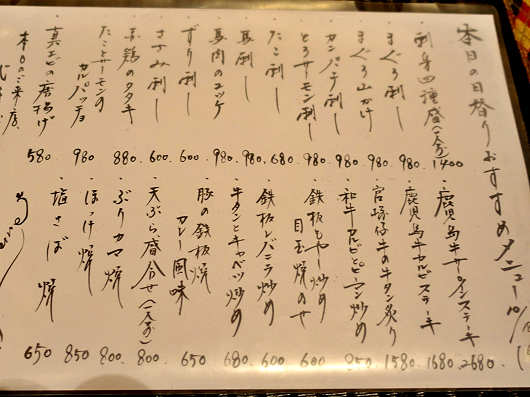 本日の日替りおすすめメニュー 10/
・刺身四種盛(一人前) 1400
・まぐろ刺し 980
・まぐろ山かけ 980
・カンパチ刺し 980
・とろサーモン刺し 980
・たこ刺し 680
・馬刺し 980
・馬肉のユッケ 980
・ずり刺し 600
・ささみ刺し 600
・赤鶏のタタキ 880
・たことサーモンのカルパッチョ 980
・真エビの唐揚げ 580
本日のご来店
・鹿児島牛サーロインステーキ 2680
・鹿児島牛カルビステーキ 1680
・宮崎仔牛の牛タン炙り 1580
・和牛カルビとピーマン炒め 850
・鉄板もやし炒め
目玉焼のせ 600
・鉄板レバニラ炒め 600
・牛タンとキャベツ炒め 680
・豚の鉄板焼
カレー風味 650
・天ぷら盛合せ(一人前) 800
・ぶりカマ焼 800
・ほっけ焼 850
・塩さば焼 650